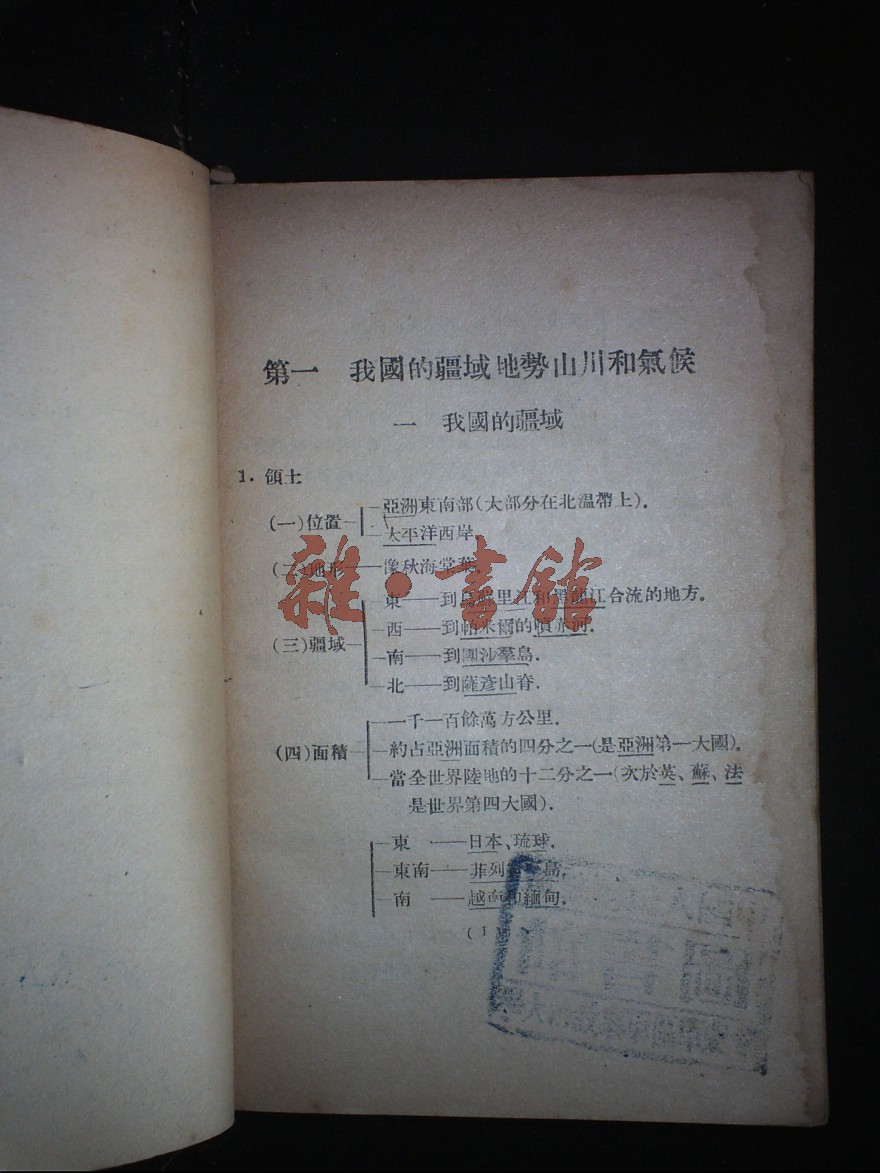 第一 我國的疆域地勢山川和氣候
一 我國的疆域
1. 領土
(一)位置
亞洲東南部(大部分在北溫帶上).
太平洋西岸.
(二)地形——像秋海棠葉.
(三)疆域
東——到烏蘇里江和黑龍江合流的地方.
西——到帕米爾的噴赤河.
南——到團沙羣島.
北——到薩彥山脊.
(四)面積
一千一百餘萬方公里.
約占亞洲面積的四分之一(是亞洲第一大國).
當全世界陸地的十二分之一(次於英、蘇、法
是世界第四大國).
東——日本、琉球.
東南——菲列 島.
南——越南和緬甸.
(1)
雜·書館